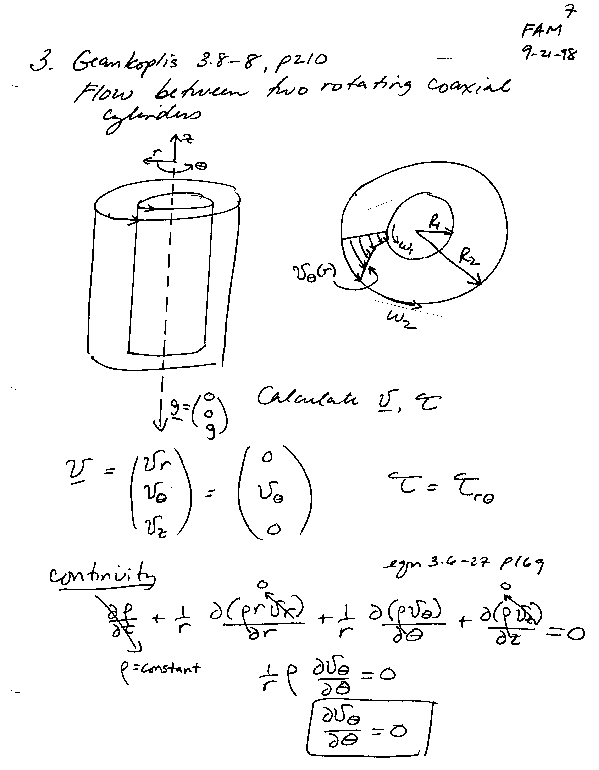 7
FAM
9-21-98
3. Geankoplis 3.8-8, p210
Flow between two rotating coaxial
cylinders
z
r
θ
R1
R2
ω1
vθ(r)
ω2
g = (0 0 g)
Calculate v, τ
v = (vr vθ vz) = (0 vθ 0)
τ = τrθ
continuity
eqn 3.6-27 p169
∂ρ/∂t + 1/r ∂(ρ r vr)/∂r + 1/r ∂(ρvθ)/∂θ + ∂(ρvz)/∂z = 0
0
0
ρ = constant
1/r ρ ∂vθ/∂θ = 0
∂vθ/∂θ = 0